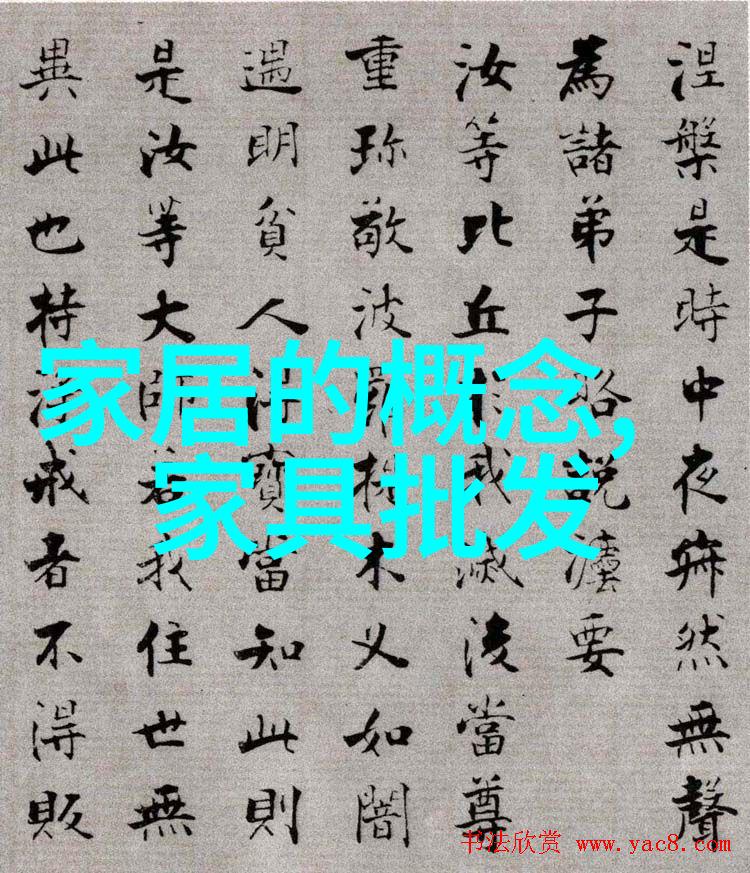 涅槃是時中夜寂然無聲
為諸弟子略說灋要
汝等比丘於我滅後當尊
重珍敬波羅提木叉如闇
遇明貧人得寶當知此則
是汝等大師若我住世無
異此也持淨戒者不得販
家居的概念,
家具批发
书法欣赏 www.yac8.com